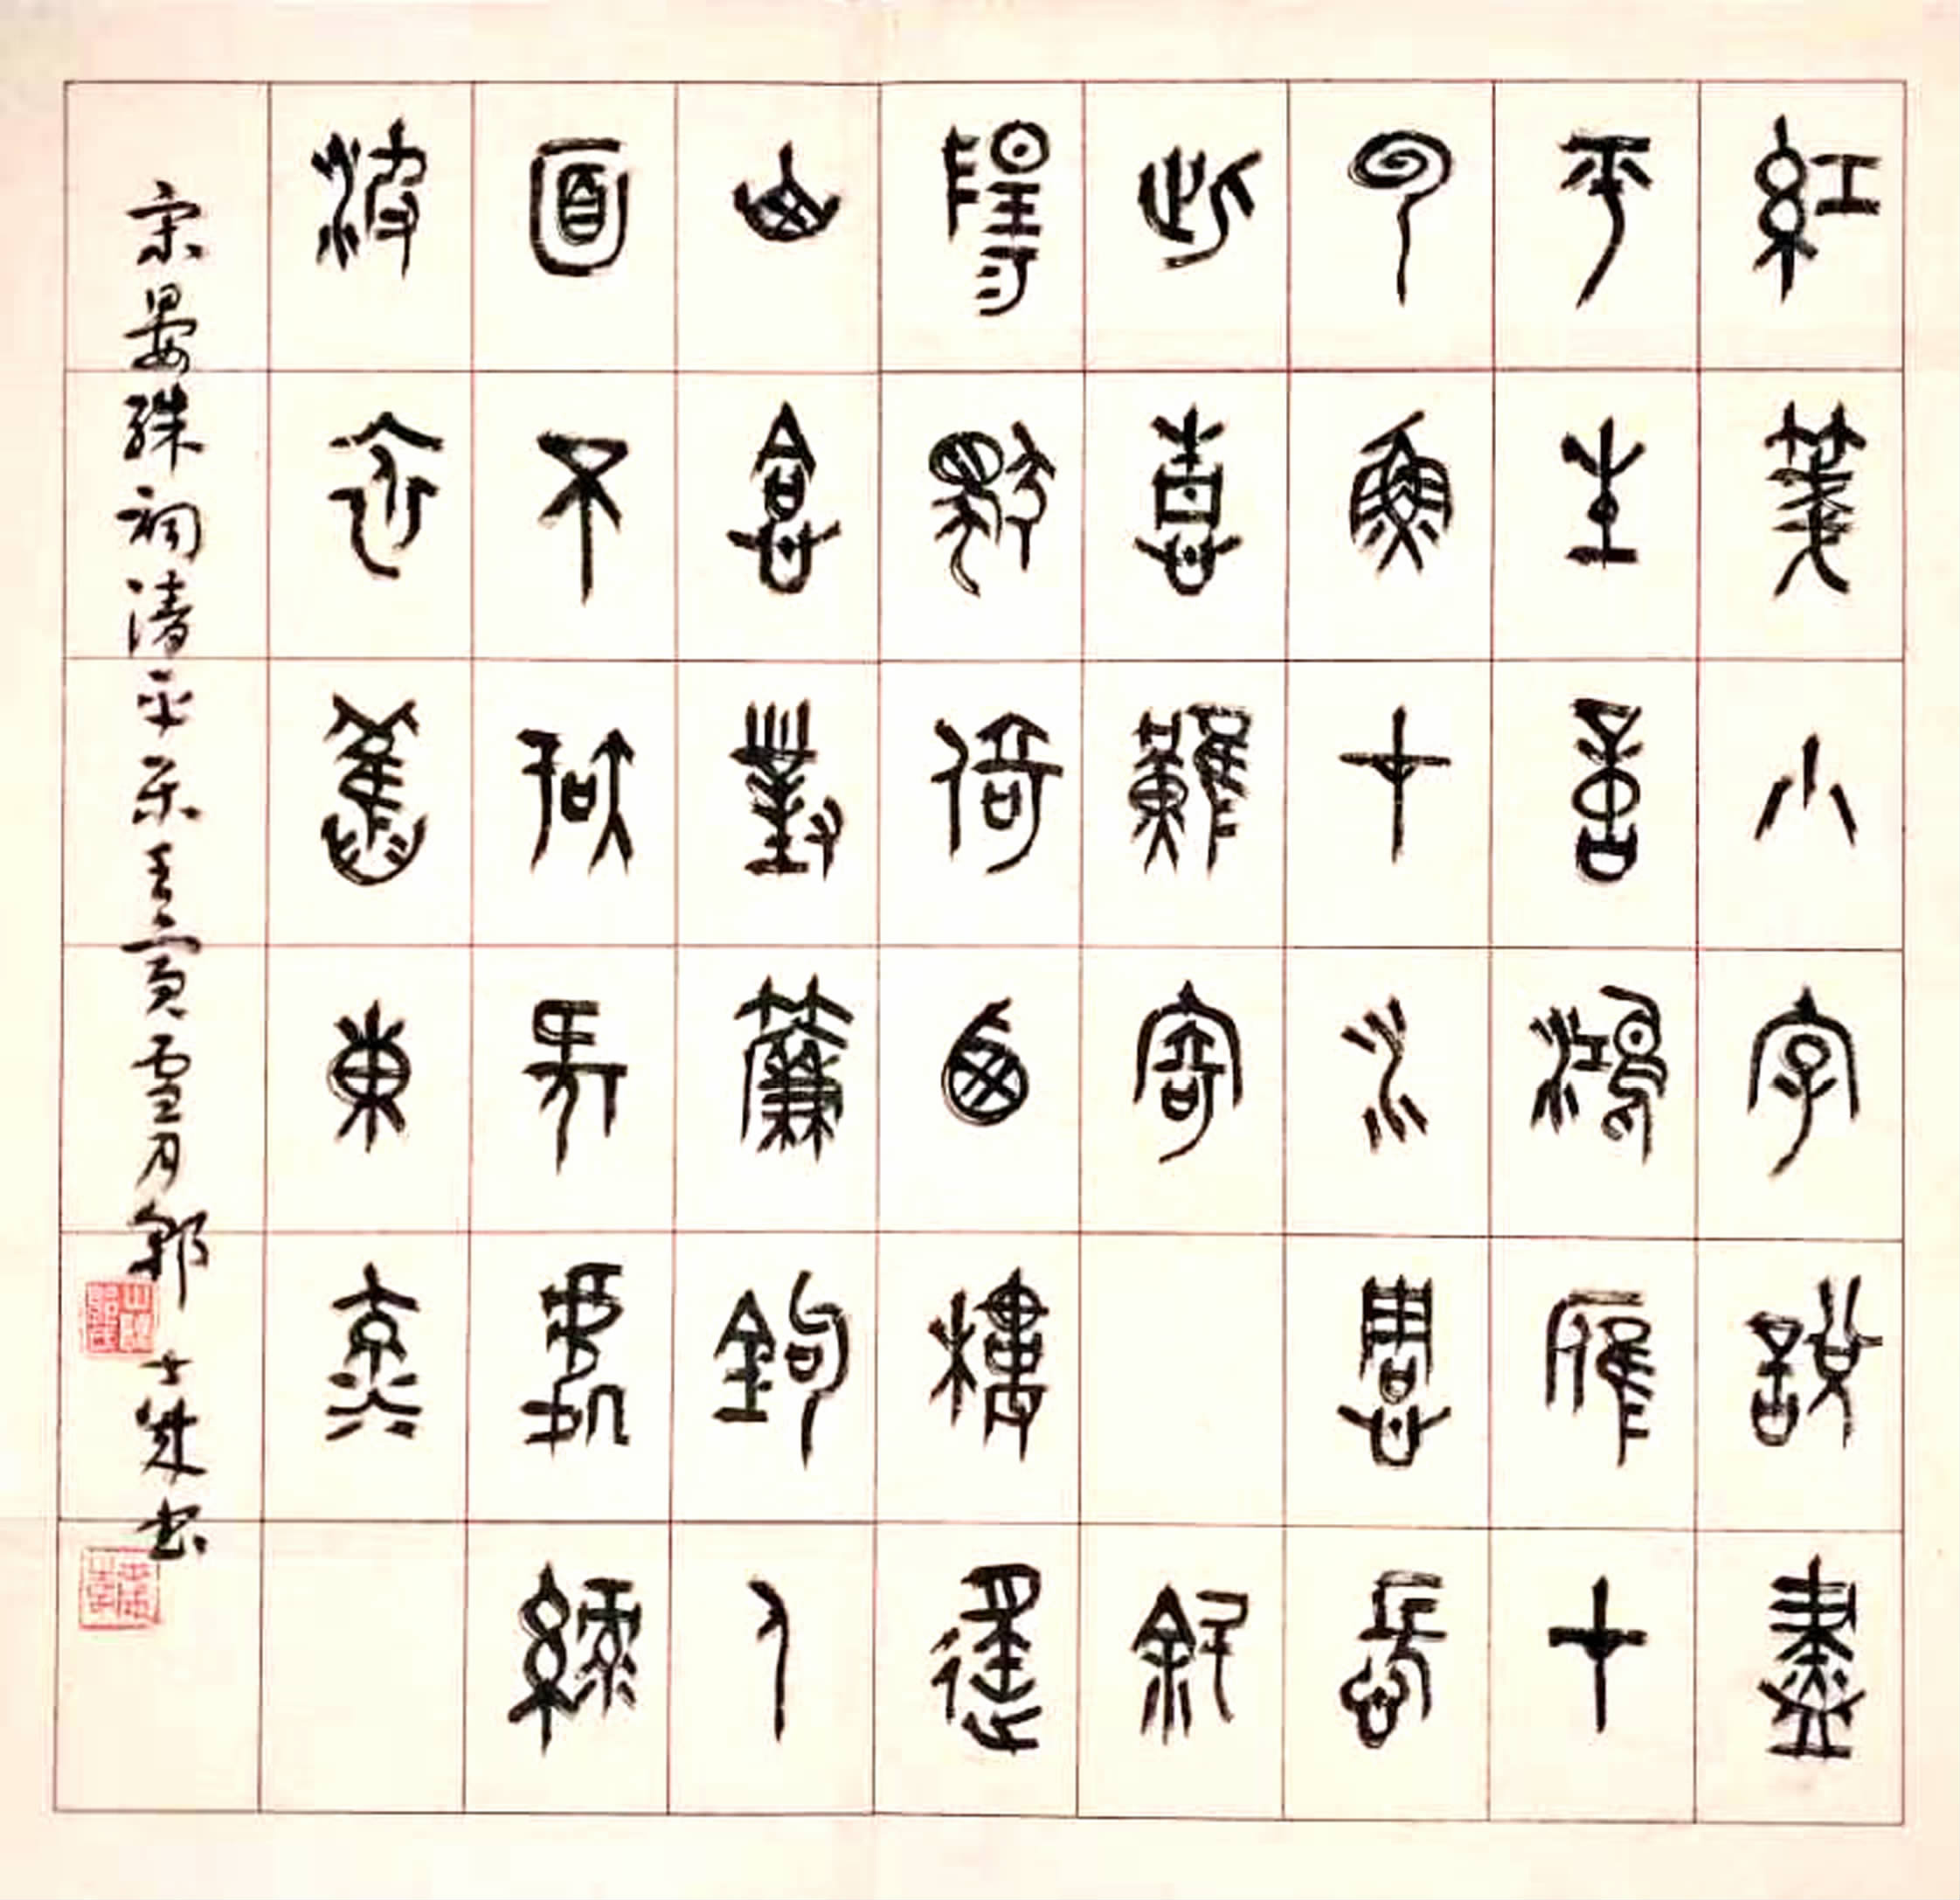 紅箋小字說盡
平生意鴻雁在
云魚在水惆悵
此情難寄斜
陽獨倚西樓遙
山恰對簾鉤人
面不知何處綠
波依舊東流
宋晏殊詞清平樂壬寅雪月郭士書